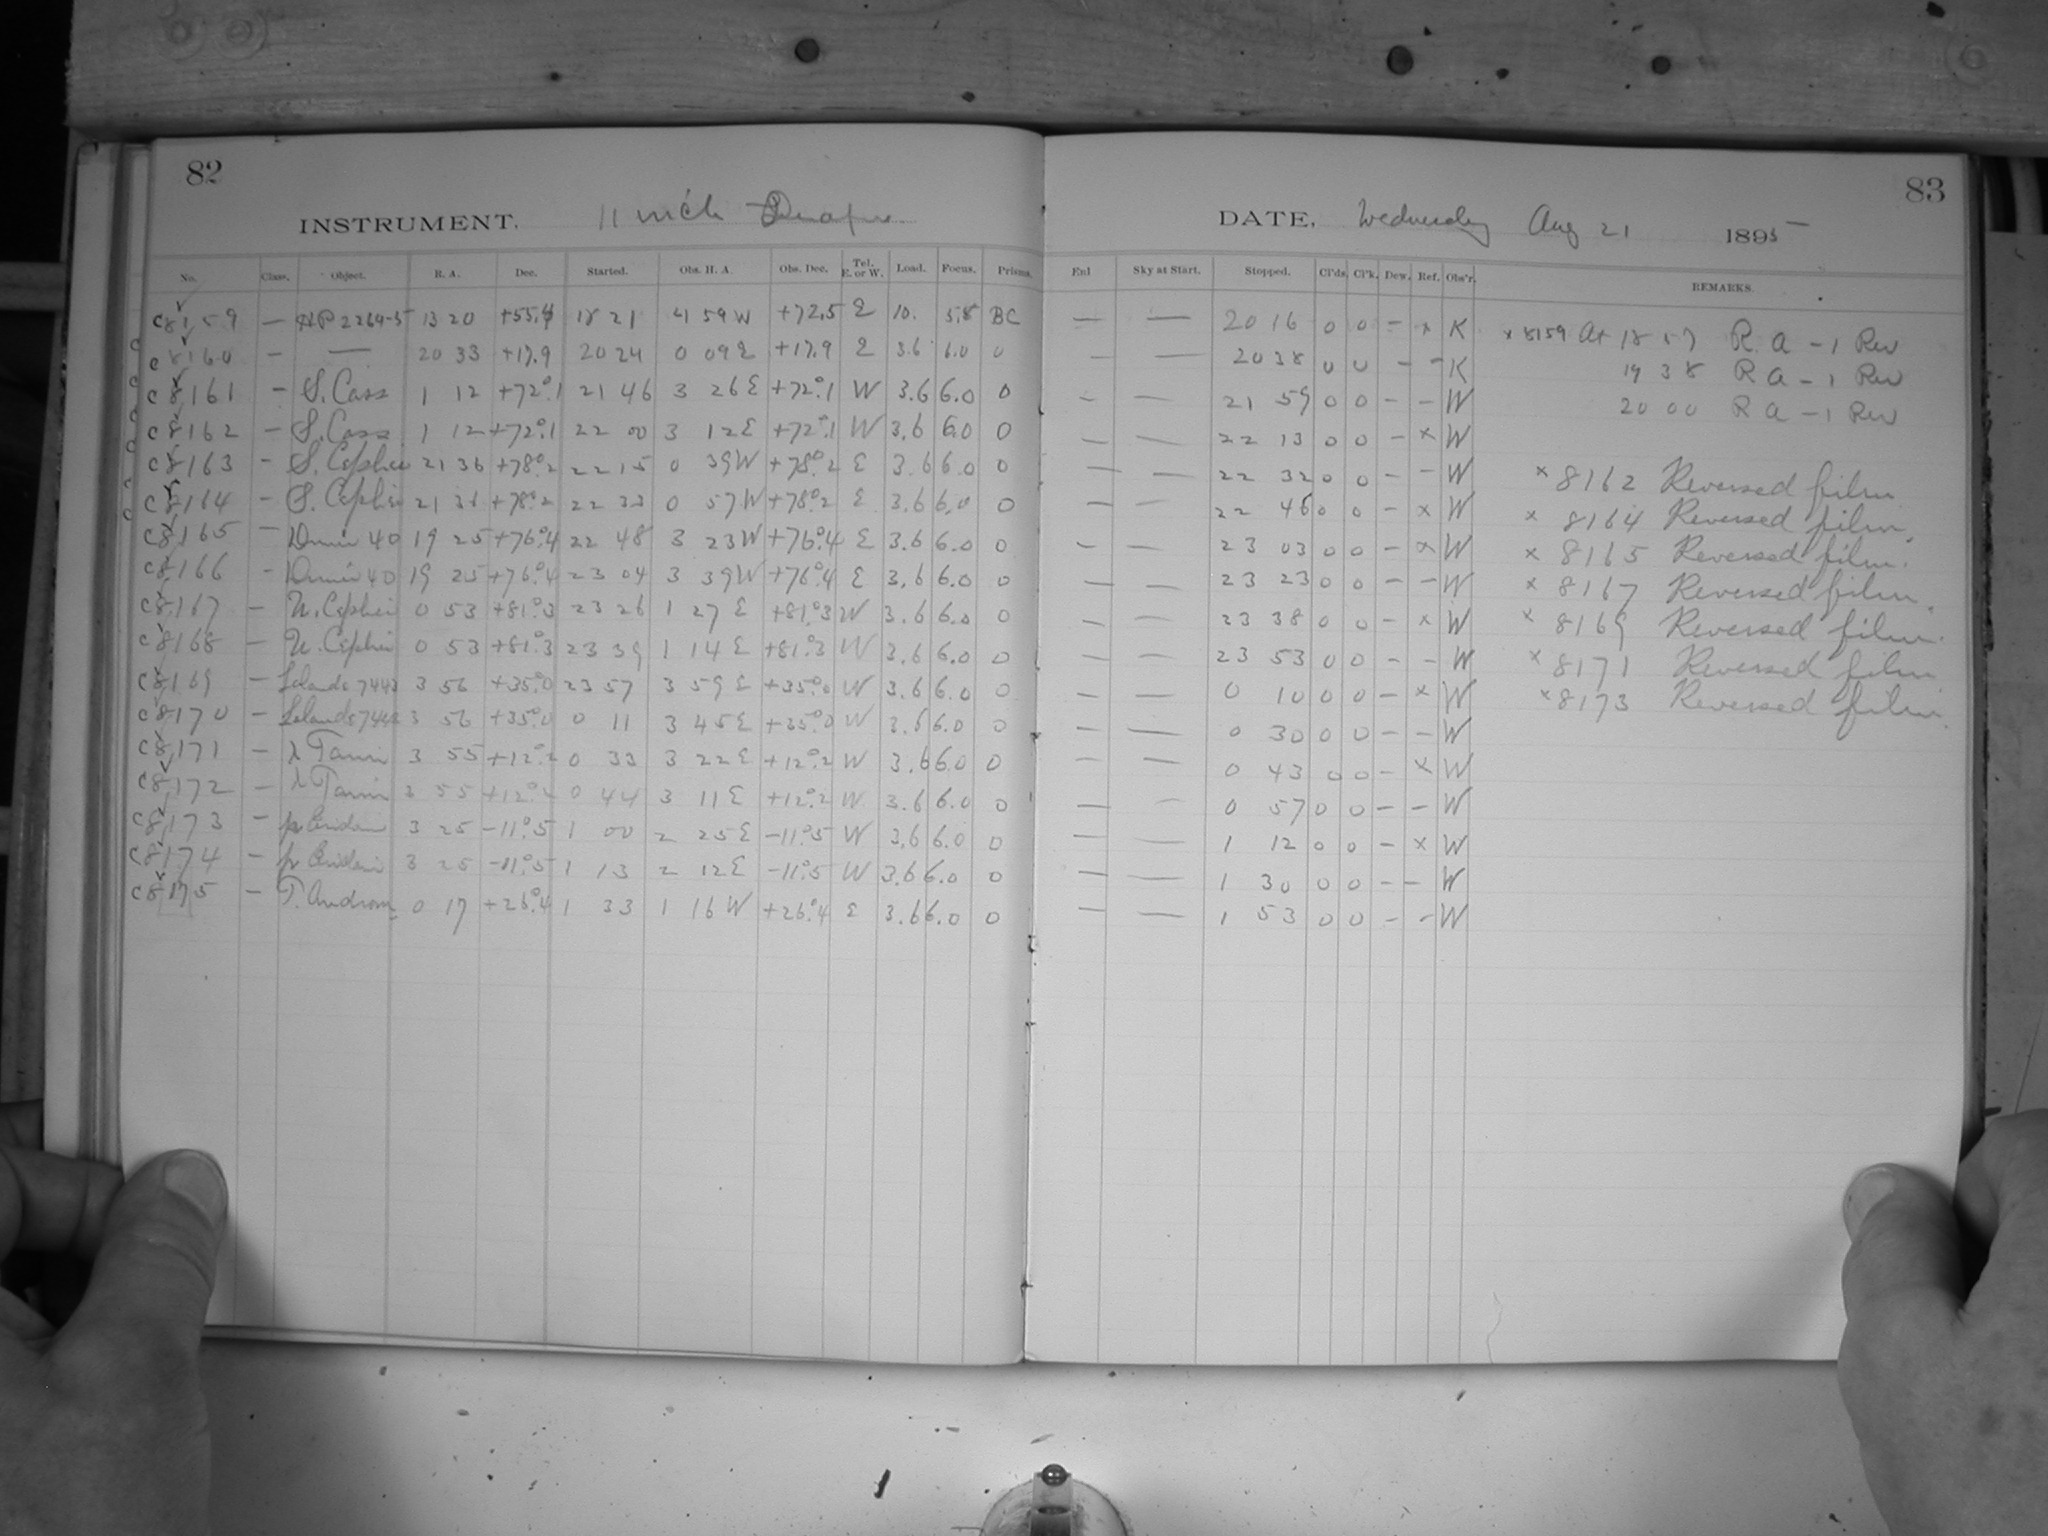 82
INSTRUMENT. 11 inch Draper
No. Class. Object. R. A. Dec. Started. Obs. H. A. Obs. Dec. Tel. E. or W. Load. Focus. Prisms.
C8159 — 13 20 +55.4 18 21 4 59 W +72.5 E 10. 5.8 BC
C8160 — — 20 33 +17.9 20 24 0 09 E +17.9 E 3.6 6.0 0
C8161 — S. Cass 1 12 +72°.1 21 46 3 26 E +72°.1 W 3.6 6.0 0
C8162 — S. Cass 1 12 +72°.1 22 00 3 12 E +72°.1 W 3.6 6.0 0
C8163 — S. Cephei 21 36 +78°.2 22 15 0 39 W +78°.2 E 3.6 6.0 0
C8164 — S. Cephei 21 36 +78°.2 22 33 0 57 W +78°.2 E 3.6 6.0 0
C8165 — 40 19 25 +76°.4 22 48 3 23 W +76°.4 E 3.6 6.0 0
C8166 — 40 19 25 +76°.4 23 04 3 39 W +76°.4 E 3.6 6.0 0
C8167 — U. Cephei 0 53 +81°.3 23 26 1 27 E +81°.3 W 3.6 6.0 0
C8168 — U. Cephei 0 53 +81°.3 23 39 1 14 E +81°.3 W 3.6 6.0 0
C8169 — Lalande 7443 3 56 +35°.0 23 57 3 59 E +35°.0 W 3.6 6.0 0
C8170 — Lalande 7443 3 56 +35°.0 0 11 3 45 E +35°.0 W 3.6 6.0 0
C8171 — λ Tauri 3 55 +12°.2 0 33 3 22 E +12°.2 W 3.6 6.0 0
C8172 — λ Tauri 3 55 +12°.2 0 44 3 11 E +12°.2 W 3.6 6.0 0
C8173 — 3 25 -11°.5 1 00 2 25 E -11°.5 W 3.6 6.0 0
C8174 — 3 25 -11°.5 1 13 2 12 E -11°.5 W 3.6 6.0 0
C8175 — T. Androm 0 17 +26°.4 1 33 1 16 W +26°.4 E 3.6 6.0 0
83
DATE, Wednesday Aug 21 1895
Enl Sky at Start. Stopped. Cl'ds. Cl'k. Dew. Ref. Obs'r. REMARKS.
— — 20 16 0 0 - x K x 8159 At 18 57 R. A - 1 Rev
— — 20 38 0 0 - - K 19 38 R A - 1 Rev
— — 21 59 0 0 - - W 20 00 R A - 1 Rev
— — 22 13 0 0 - x W
— — 22 32 0 0 - - W x 8162 Reversed film
— — 22 46 0 0 - x W x 8164 Reversed film.
— — 23 03 0 0 - x W x 8165 Reversed film.
— — 23 23 0 0 - - W x 8167 Reversed film.
— — 23 38 0 0 - x W x 8169 Reversed film.
— — 23 53 0 0 - - W x 8171 Reversed film
— — 0 10 0 0 - x W x 8173 Reversed film.
— — 0 30 0 0 - - W
— — 0 43 0 0 - x W
— — 0 57 0 0 - - W
— — 1 12 0 0 - x W
— — 1 30 0 0 - - W
— — 1 53 0 0 - - W